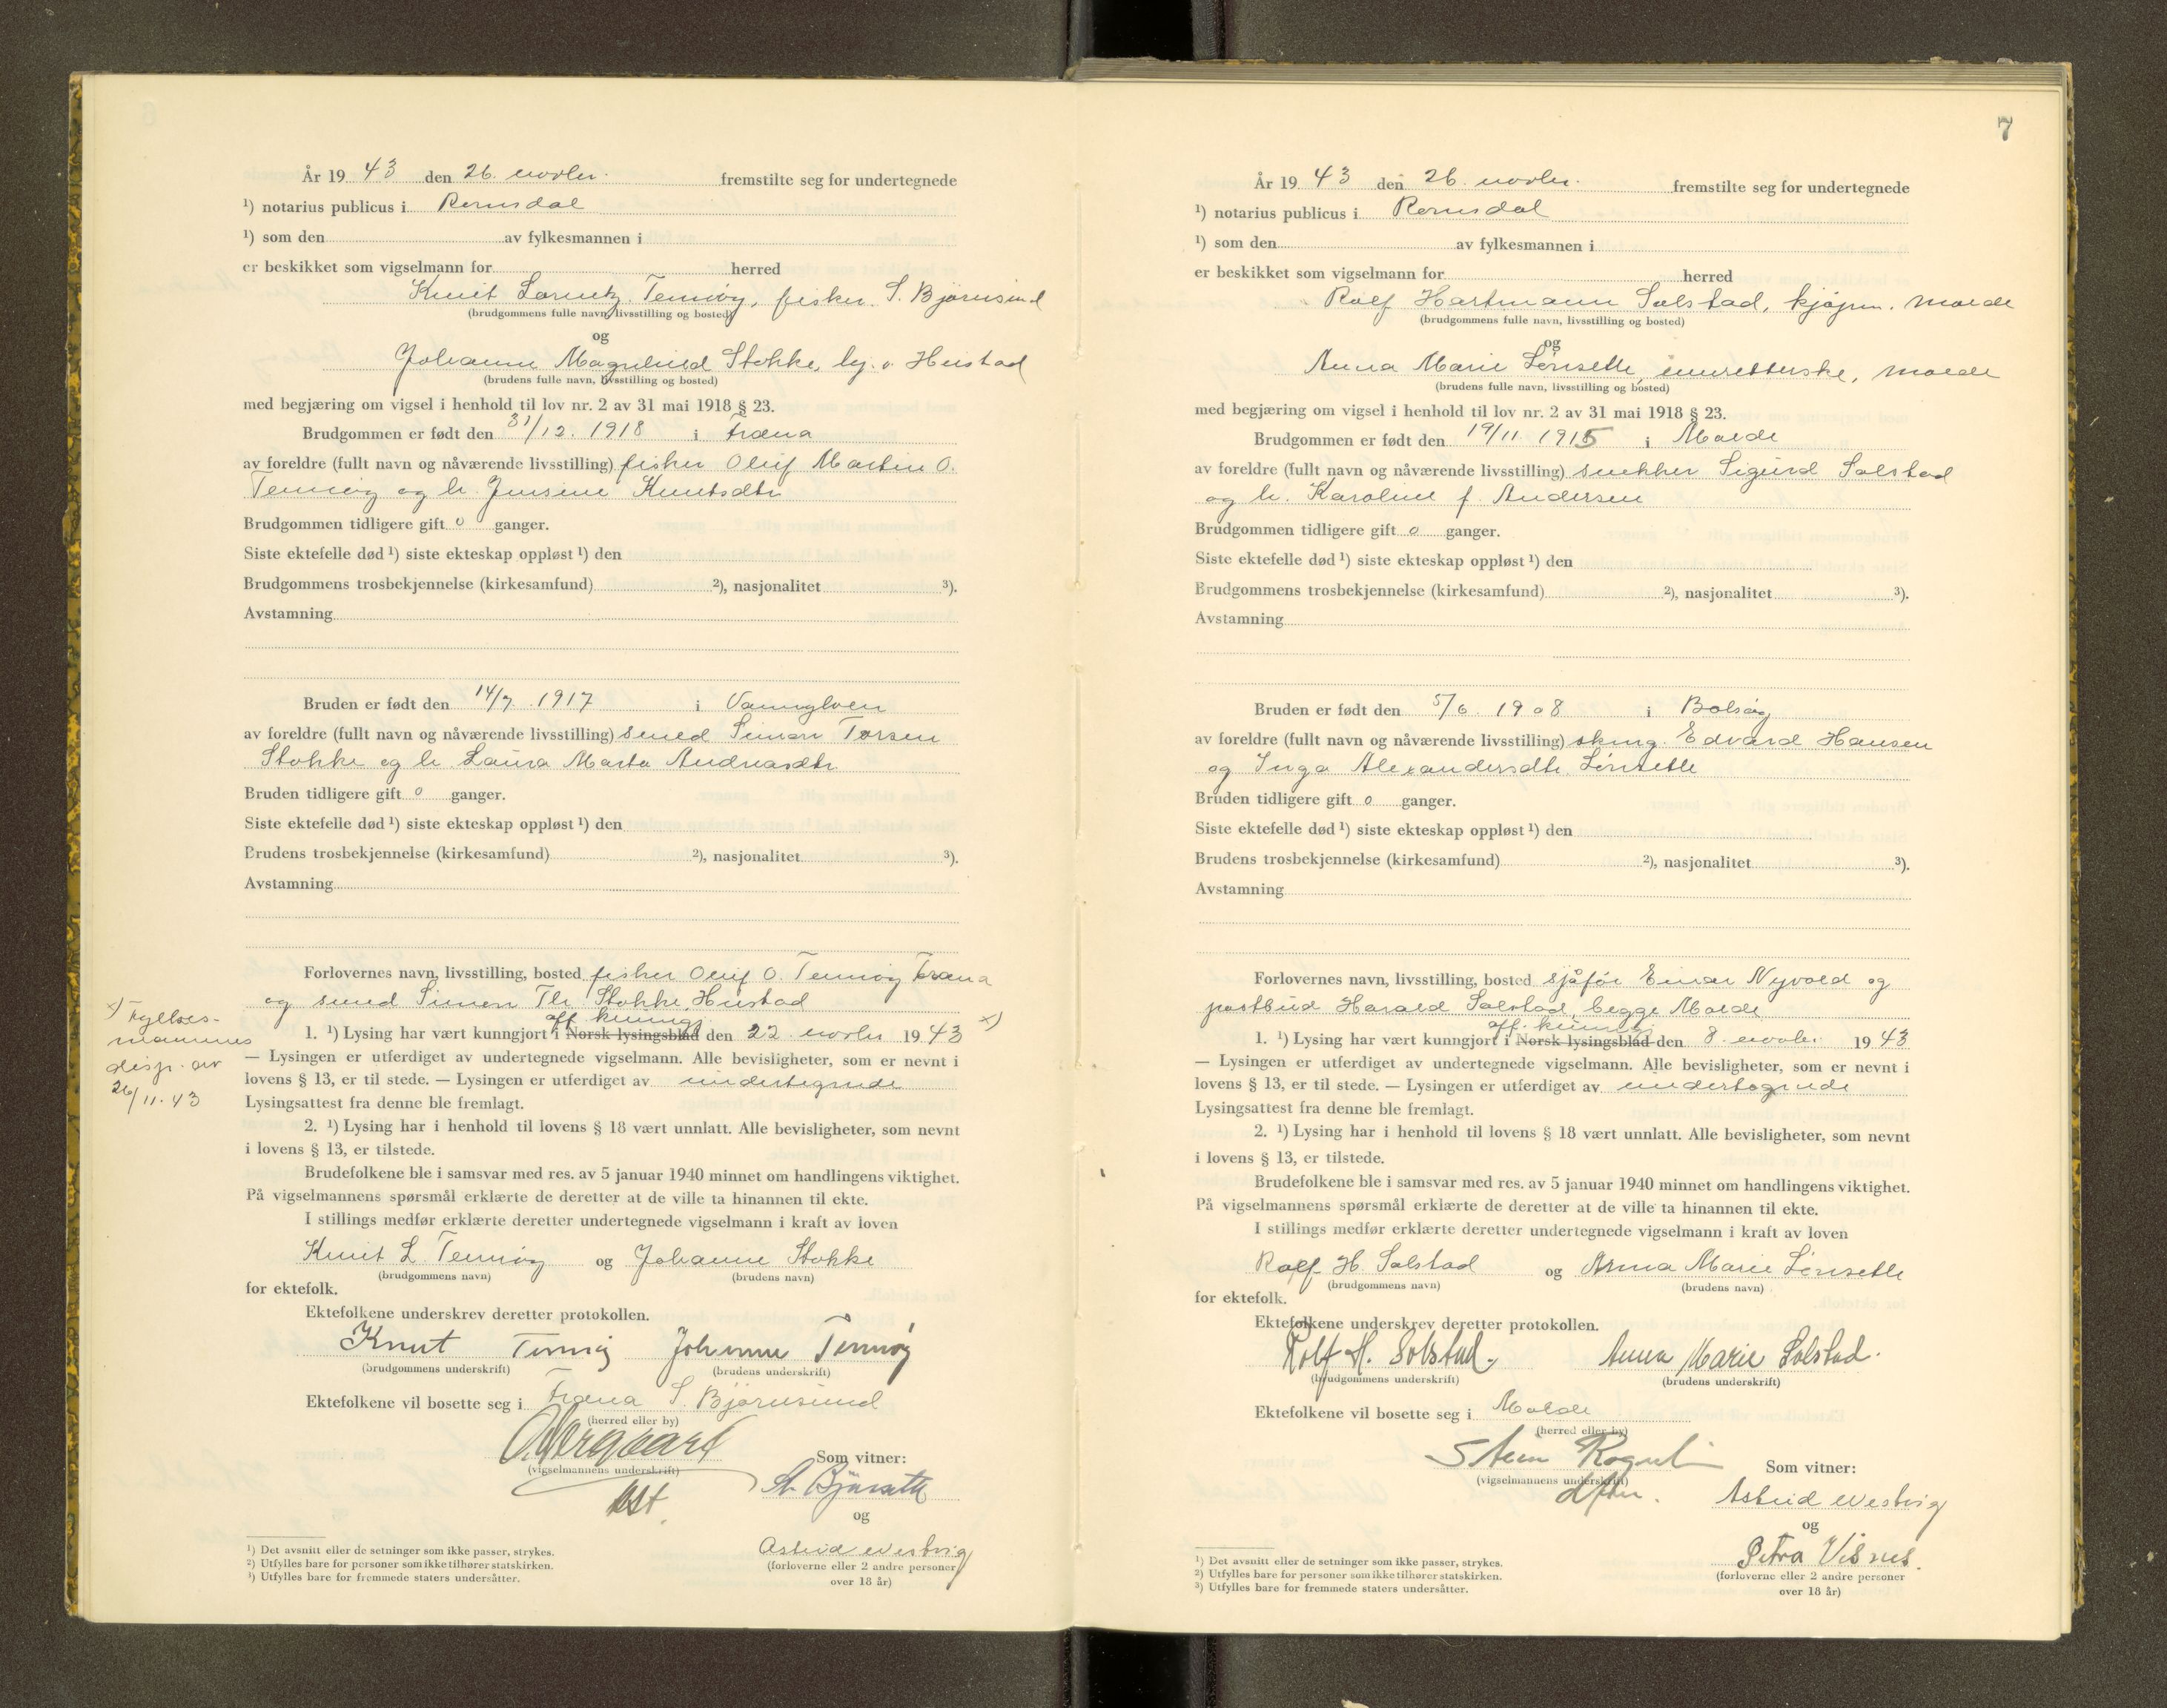 År 19 43 den 26. novbr. fremstilte seg for undertegnede
¹) notarius publicus i Romsdal
¹) som den av fylkesmannen i
er beskikket som vigselmann for herred
Knut Lorentz Tennøy, fisker. S. Bjørnsund
(brudgommens fulle navn, livsstilling og bosted)
og
Johanne Magnhild Stokke, Hustad
(brudens fulle navn, livsstilling og bosted)
med begjæring om vigsel i henhold til lov nr. 2 av 31 mai 1918 § 23.
Brudgommen er født den 31/12. 1918 i Fræna
av foreldre (fullt navn og nåværende livsstilling) fisker Oluf Martin O.
Tennøy og h. Jensine Knutsdtr
Brudgommen tidligere gift 0 ganger.
Siste ektefelle død ¹) siste ekteskap oppløst ¹) den
Brudgommens trosbekjennelse (kirkesamfund) ²), nasjonalitet ³).
Avstamning
Bruden er født den 14/7. 1917 i Vannylven
av foreldre (fullt navn og nåværende livsstilling) smed Simon Torsen
Stokke og h. Laura Marta Andreasdtr
Bruden tidligere gift 0 ganger.
Siste ektefelle død ¹) siste ekteskap oppløst ¹) den
Brudens trosbekjennelse (kirkesamfund) ²), nasjonalitet ³).
Avstamning
Forlovernes navn, livsstilling, bosted fisher Oluf O. Tennøy Fræna
og smed Simon Th. Stokke Hustad
off. kunngj.
1. ¹) Lysing har vært kunngjort i Norsk lysingsblad den 22. novbr 19 43 x)
x) Fylkes-
mannens
disp. av
26/11. 43
— Lysingen er utferdiget av undertegnede vigselmann. Alle bevisligheter, som er nevnt i
lovens § 13, er til stede. — Lysingen er utferdiget av undertegnede
Lysingsattest fra denne ble fremlagt.
2. ¹) Lysing har i henhold til lovens § 18 vært unnlatt. Alle bevisligheter, som nevnt
i lovens § 13, er tilstede.
Brudefolkene ble i samsvar med res. av 5 januar 1940 minnet om handlingens viktighet.
På vigselmannens spørsmål erklærte de deretter at de ville ta hinannen til ekte.
I stillings medfør erklærte deretter undertegnede vigselmann i kraft av loven
Knut L. Tennøy og Johanne Stokke
(brudgommens navn) (brudens navn)
for ektefolk.
Ektefolkene underskrev deretter protokollen.
Knut Tennøy Johanne Tennøy
(brudgommens underskrift) (brudens underskrift)
Ektefolkene vil bosette seg i Fræna S. Bjørnsund
(herred eller by)
Som vitner:
(vigselmannens underskrift)
og
Astrid Westvig
(forloverne eller 2 andre personer
over 18 år)
¹) Det avsnitt eller de setninger som ikke passer, strykes.
²) Utfylles bare for personer som ikke tilhører statskirken.
³) Utfylles bare for fremmede staters undersåtter.
7
År 19 43 den 26. novbr. fremstilte seg for undertegnede
¹) notarius publicus i Romsdal
¹) som den av fylkesmannen i
er beskikket som vigselmann for herred
Rolf Hartmann Solstad, kjøpm. Molde
(brudgommens fulle navn, livsstilling og bosted)
og
Anna Marie Lønsetle, Molde
(brudens fulle navn, livsstilling og bosted)
med begjæring om vigsel i henhold til lov nr. 2 av 31 mai 1918 § 23.
Brudgommen er født den 19/11 1915 i Molde
av foreldre (fullt navn og nåværende livsstilling) snekker Sigurd Solstad
og h. Karoline f. Andersen
Brudgommen tidligere gift 0 ganger.
Siste ektefelle død ¹) siste ekteskap oppløst ¹) den
Brudgommens trosbekjennelse (kirkesamfund) ²), nasjonalitet ³).
Avstamning
Bruden er født den 5/6. 1908 i Bolsøy
av foreldre (fullt navn og nåværende livsstilling) Edvard Hansen
og Inga Alexandersdtr. Lønsetle
Bruden tidligere gift 0 ganger.
Siste ektefelle død ¹) siste ekteskap oppløst ¹) den
Brudens trosbekjennelse (kirkesamfund) ²), nasjonalitet ³).
Avstamning
Forlovernes navn, livsstilling, bosted sjåfør Einar Nyvold og
postbud Harald Solstad, begge Molde
off. kunngj
1. ¹) Lysing har vært kunngjort i Norsk lysingsblad den 8. novbr. 19 43
— Lysingen er utferdiget av undertegnede vigselmann. Alle bevisligheter, som er nevnt i
lovens § 13, er til stede. — Lysingen er utferdiget av undertegnede
Lysingsattest fra denne ble fremlagt.
2. ¹) Lysing har i henhold til lovens § 18 vært unnlatt. Alle bevisligheter, som nevnt
i lovens § 13, er tilstede.
Brudefolkene ble i samsvar med res. av 5 januar 1940 minnet om handlingens viktighet.
På vigselmannens spørsmål erklærte de deretter at de ville ta hinannen til ekte.
I stillings medfør erklærte deretter undertegnede vigselmann i kraft av loven
Rolf H. Solstad og Anna Marie Lønsetle
(brudgommens navn) (brudens navn)
for ektefolk.
Ektefolkene underskrev deretter protokollen.
Rolf H. Solstad. Anna Marie Solstad.
(brudgommens underskrift) (brudens underskrift)
Ektefolkene vil bosette seg i Molde
(herred eller by)
Som vitner:
(vigselmannens underskrift)
Astrid Westvig
og
Petra Visnes.
(forloverne eller 2 andre personer
over 18 år)
¹) Det avsnitt eller de setninger som ikke passer, strykes.
²) Utfylles bare for personer som ikke tilhører statskirken.
³) Utfylles bare for fremmede staters undersåtter.